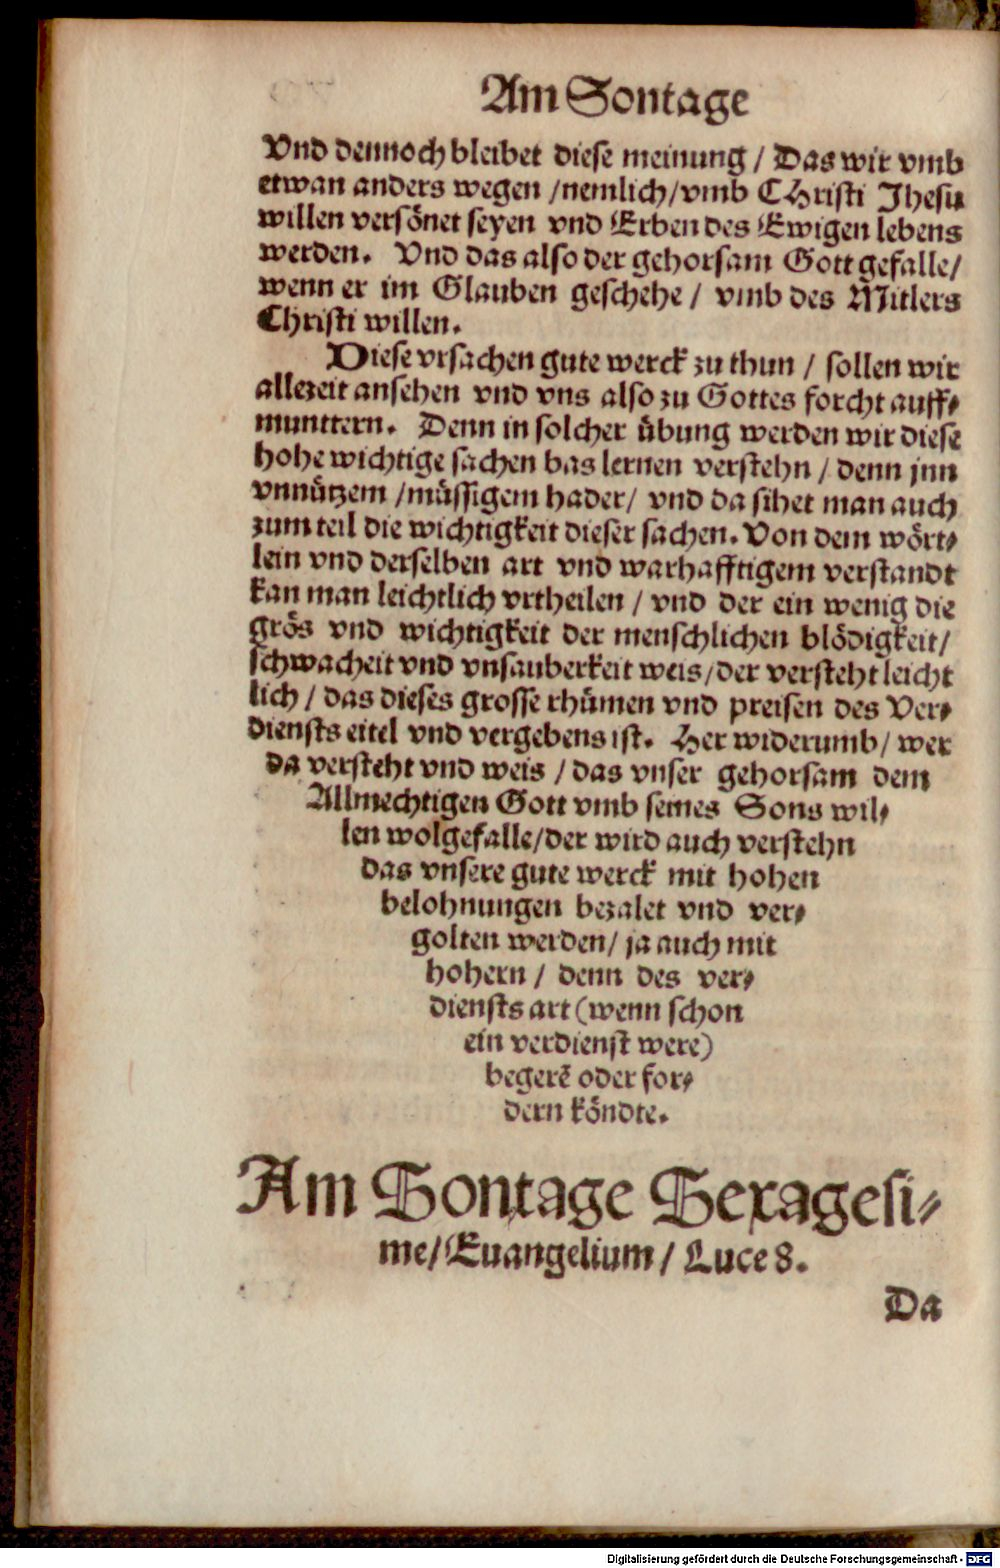 Am Sontage
Vnd dennoch bleibet diese meinung / Das wir vmb
etwan anders wegen /nemlich/vmb CHristi Jhesu
willen versönet seyen vnd Erben des Ewigen lebens
werden. Vnd das also der gehorsam Gott gefalle/
wenn er im Glauben geschehe / vmb des Mitlers
Christi willen.
Diese vrsachen gute werck zu thun / sollen wir
allezeit ansehen vnd vns also zu Gottes forcht auff⸗
munttern. Denn in solcher übung werden wir diese
hohe wichtige sachen bas lernen verstehn / denn jnn
vnnützem /müssigem hader/ vnd da sihet man auch
zum teil die wichtigkeit dieser sachen. Von dem wört⸗
lein vnd derselben art vnd warhafftigem verstandt
kan man leichtlich vrtheilen / vnd der ein wenig die
grös vnd wichtigkeit der menschlichen blödigkeit/
schwacheit vnd vnsauberkeit weis/der versteht leicht
lich / das dieses grosse rhümen vnd preisen des Ver⸗
diensts eitel vnd vergebens ist. Her widerumb/ wer
da versteht vnd weis / das vnser gehorsam dem
Allmechtigen Gott vmb seines Sons wil⸗
len wolgefalle/der wird auch verstehn
das vnsere gute werck mit hohen
belohnungen bezalet vnd ver⸗
golten werden/ ja auch mit
hohern / denn des ver⸗
diensts art (wenn schon
ein verdienst were)
begerē oder for⸗
dern köndte.
Am Sontage Sexagesi⸗
me/Euangelium / Luce 8.
Da
Digitalisierung gefördert durch die Deutsche Forschungsgemeinschaft - DFG